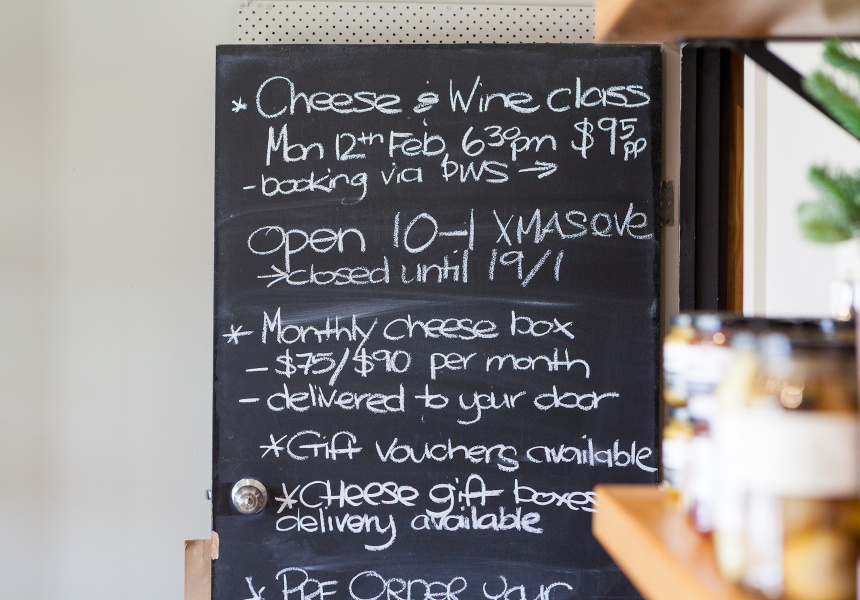 * Cheese & Wine class
Mon 12th Feb, 630pm $95pp
- booking via DWS →
Open 10-1 XMAS eve
→ closed until 19/1
* Monthly cheese box
- $75/$90 per month
- delivered to your door
* Gift vouchers available
* Cheese gift boxes
delivery available
* PRE ORDER your